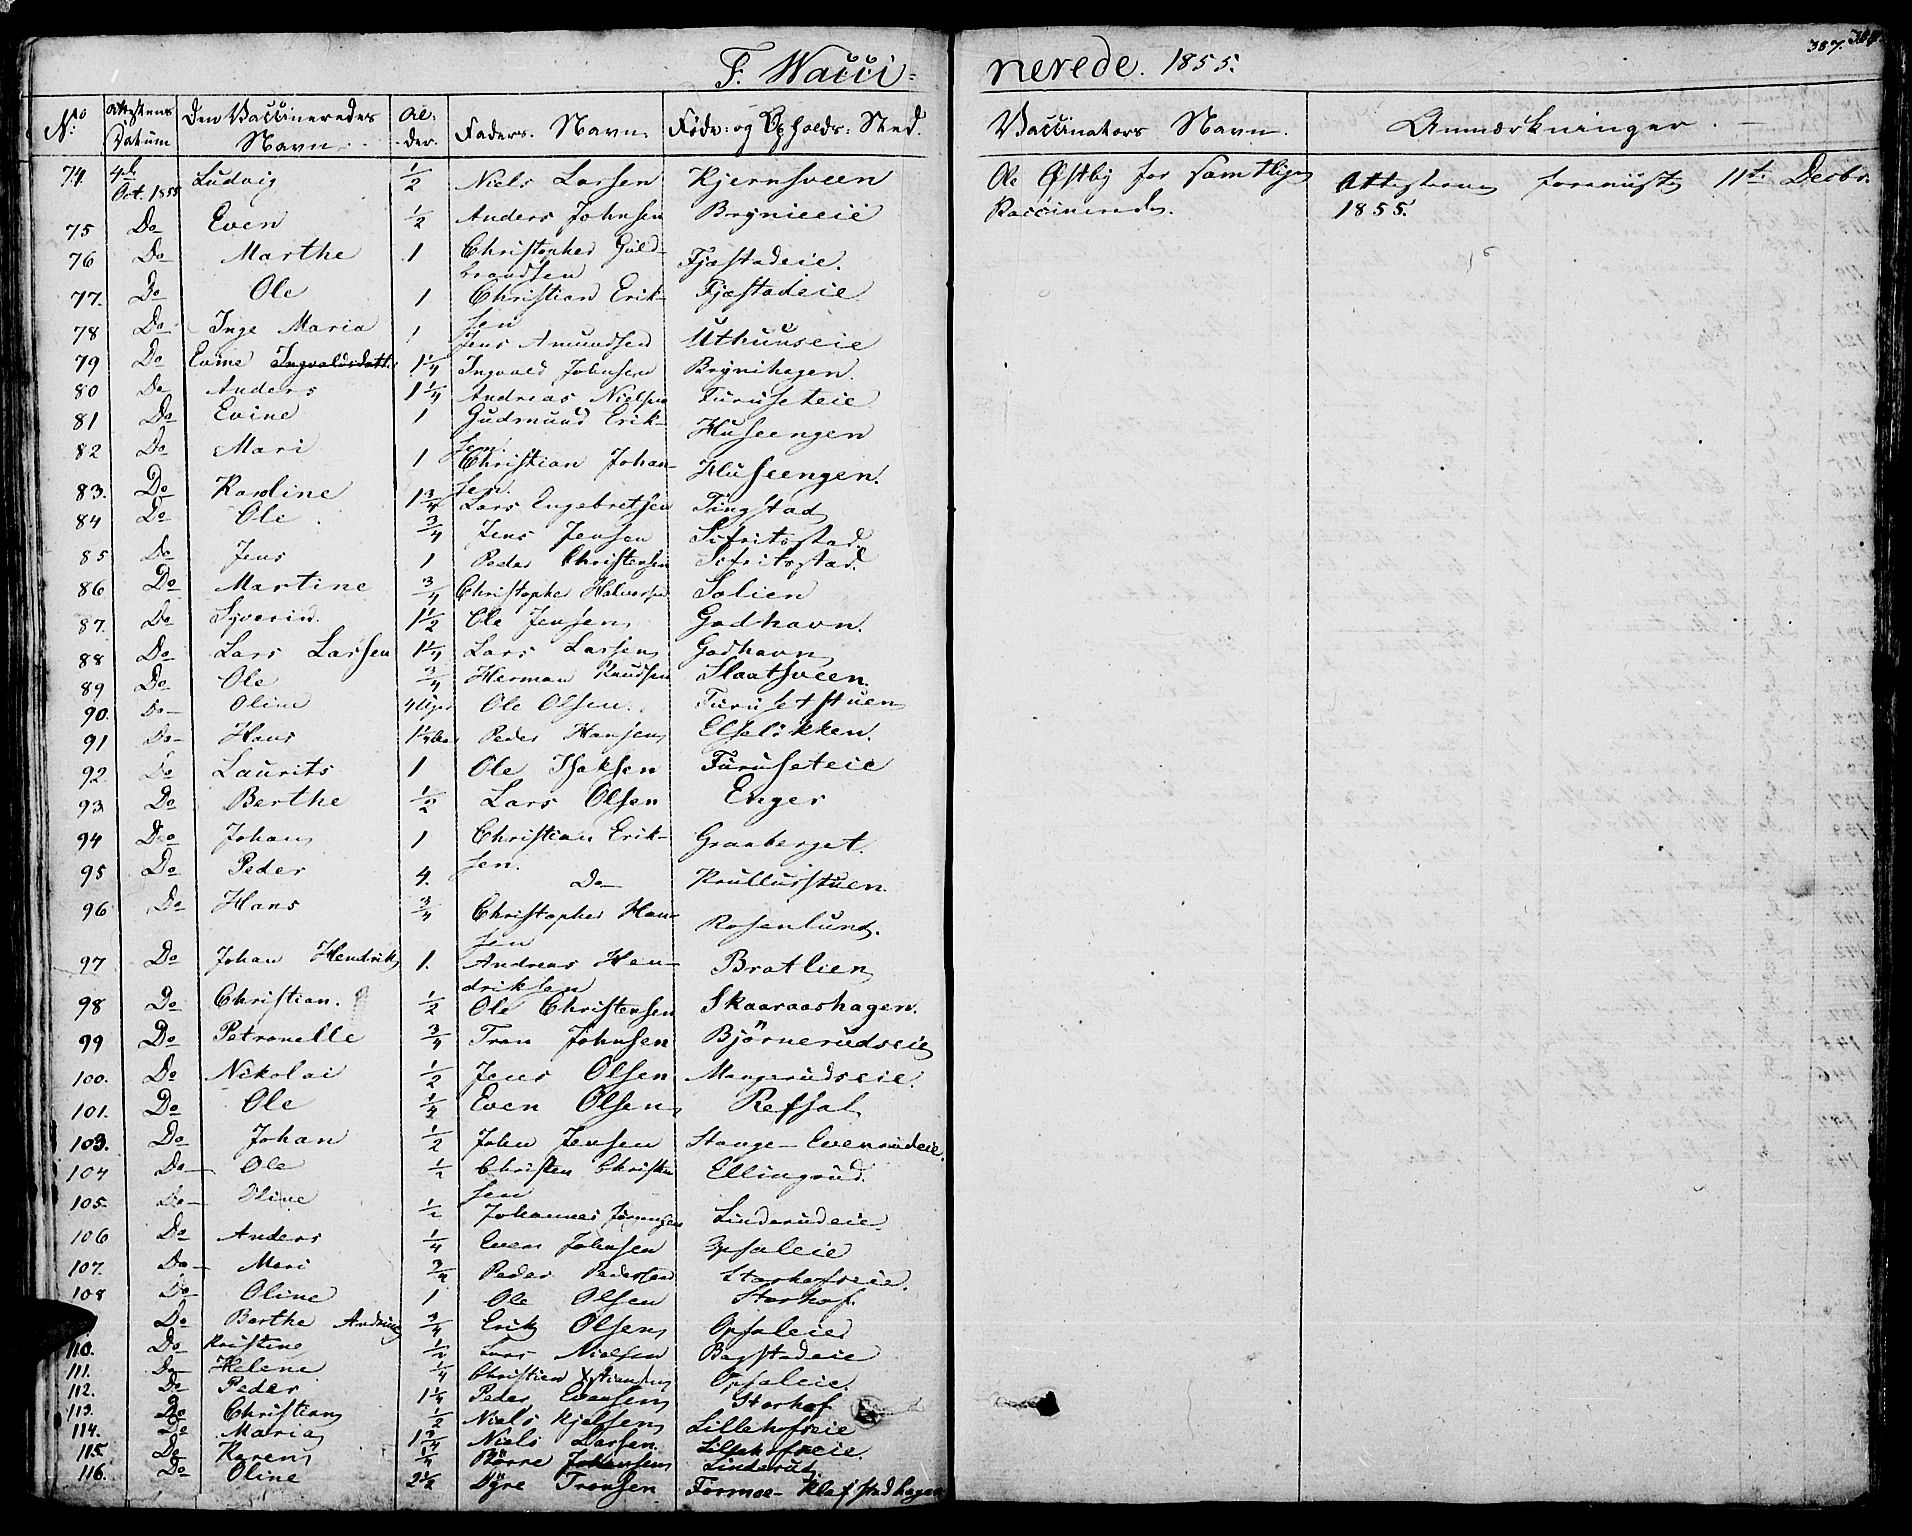 F. Wacci-
nerede. 1855.
357.
No. Attestens Datum Den Vaccineredes Navn. Al- der. Faders Navn. Føde- og Opholds-Sted. Vaccinators Navn. Anmærkninger.
74 4de Oct. 1855 Ludvig 1/2 Niels Larsen Kjernsveen Ole Østby for samtlige Attesterne foreviiste 11te Decbr.
Vaccinerede. 1855.
75 Do Even 1/2 Anders Johnsen Brynieeie
76 Do Marthe 1 Christopher Guld-
brandsen Fjæstadeie.
77. Do Ole 1 Christian Erik-
sen Fjæstadeie
78 Do Inge Maria 1 Jens Amundsen Uthuuseie
79 Do Evine Ingvaldsdatt. 1 1/4 Ingvald Johnsen Brynihagen.
80 Do Anders 1 1/4 Andreas Nielsen Furuseteie
81 Do Evine 1 Gudmund Erik-
sen Huseengen
82 Do Mari 1 Christian Johan-
sen. Huseengen.
83. Do Karoline 1 3/4 Lars Engebretsen Tingstad
84 Do Ole 3/4 Jens Jensen Sifritsstad
85 Do Jens 1 Peder Christensen Sifritsstad.
86 Do Martine 3/4 Christopher Halvorsen Solien
87. Do Syverin. 1 1/2 Ole Jensen Godhavn.
88 Do Lars Larsen 1 1/4 Lars Larsen Godhavn
89 Do Ole 3/4 Herman Knudsen Slaatsveen.
90. Do Oline 4 Uger Ole Olsen. Furusetstuen
91 Do Hans 1 1/4 Aar Peder Hansen Elseløkken.
92 Do Laurits 1 Ole Isaksen Furuseteie
93 Do Berthe 1/2 Lars Olsen Enger
94 Do Johan 1 Christian Erik-
sen. Graaberget.
95 Do Peder 4. Do Krullusstuen.
96 Do Hans 3/4 Christopher Han-
sen Rosenlund.
97 Do Johan Hendrik 1. Andreas Hen-
driksen Bratlien
98 Do Christian. 1/2 Ole Christensen Skaaraashagen.
99 Do Petronelle 3/4 Tron Johnsen Bjørnerudseie
100. Do Nikolai 1/2 Jens Olsen Mangerudseie.
101. Do Ole 1/4 Even Olsen Refsal
103. Do Johan 1/2 John Jensen Stange- Evenrudeie.
104 Do Ole 1/2 Christen Christen
sen Ellingrud.
105. Do Oline 1/2 Johannes Linderudeie
106 Do Anders 1/4 Even Johnsen Opsaleie
107. Do Mari 3/4 Peder Pedersen Storhofseie.
108 Do Oline 1 Ole Olsen Storhof.
Do Berthe Andrine 3/4 Erik Olsen Opsaleie
110. Do Kristine 1/2 Lars Nielsen Bagstadeie
111. Do Helene 1/4 Christian Opsaleie.
112. Do Peder 1 1/4 Peder Evensen Storhof
113. Do Christian 1/2 Niels Kjelsen Lillehofseie
114. Do Maria 1 3/4 Niels Larsen Lillehofseie.
115. Do Karen 1/4 Børre Johansen Linderud
116. Do Oline 2 1/2 Dyre Tronsen Formoe- Klafstadhagen